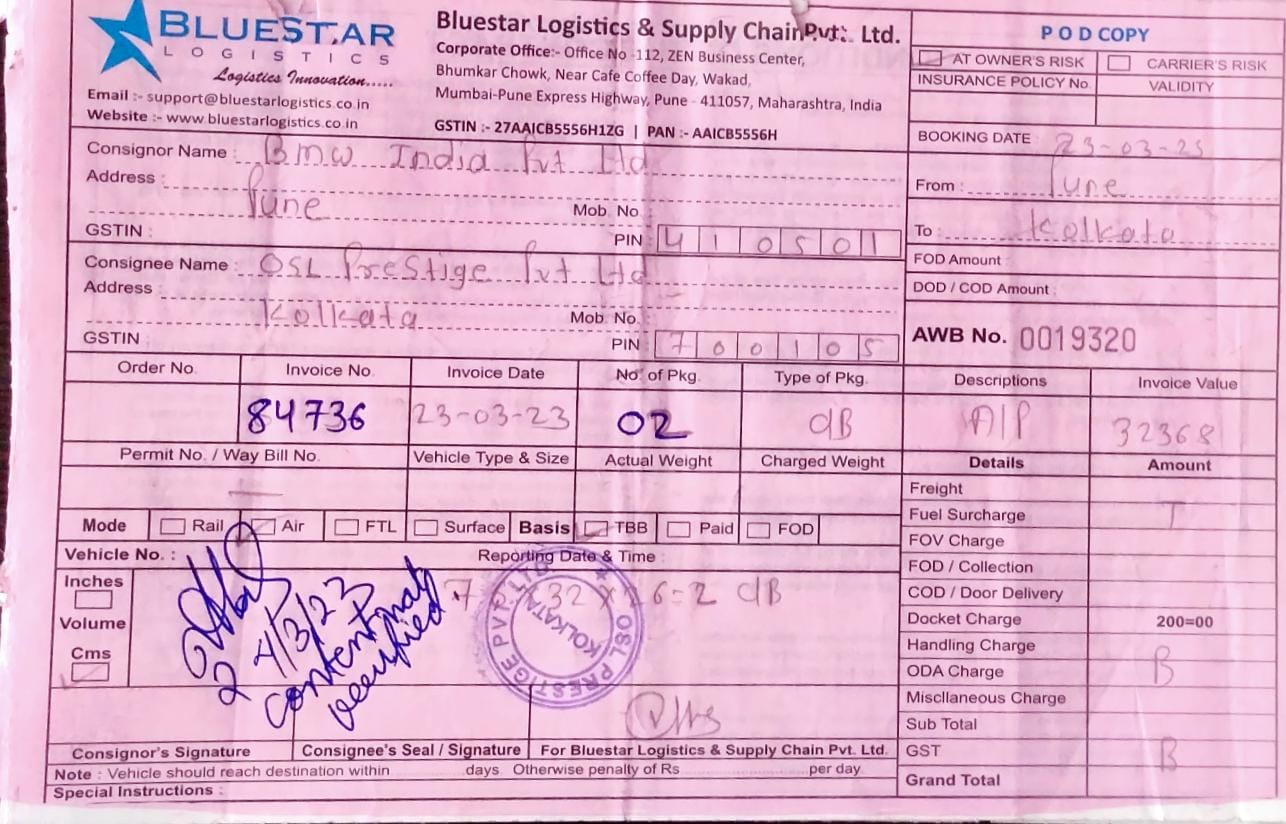 BLUESTAR
LOGISTICS
Logistics Innovation.....
Email :- support@bluestarlogistics.co.in
Website :- www.bluestarlogistics.co.in
Bluestar Logistics & Supply Chain Pvt. Ltd.
Corporate Office:- Office No -112, ZEN Business Center,
Bhumkar Chowk, Near Cafe Coffee Day, Wakad,
Mumbai-Pune Express Highway, Pune - 411057, Maharashtra, India
GSTIN :- 27AAICB5556H1ZG | PAN :- AAICB5556H
POD COPY
AT OWNER'S RISK CARRIER'S RISK
INSURANCE POLICY No. VALIDITY
BOOKING DATE : 23-03-23
From : Pune
To : Kolkata
FOD Amount :
DOD / COD Amount :
AWB No. 0019320
Consignor Name : BMW India Pvt Ltd
Address :
Pune Mob. No. :
GSTIN : PIN : 410501
Consignee Name : OSL Prestige Pvt Ltd
Address :
Kolkata Mob. No. :
GSTIN : PIN : 700105
Order No. Invoice No. Invoice Date No. of Pkg. Type of Pkg. Descriptions Invoice Value
84736 23-03-23 02 dB A/P 32368
Permit No. / Way Bill No. Vehicle Type & Size Actual Weight Charged Weight Details Amount
Mode Rail Air FTL Surface Basis TBB Paid FOD
Vehicle No. : Reporting Date & Time :
Inches
Volume
Cms
32 x 26=2 dB
24/3/23
Content not
verified
OSL PRESTIGE PVT. LTD.
KOLKATA
Freight
Fuel Surcharge T
FOV Charge
FOD / Collection
COD / Door Delivery
Docket Charge 200=00
Handling Charge
ODA Charge B
Miscllaneous Charge
Sub Total
GST B
Grand Total
Consignor's Signature Consignee's Seal / Signature For Bluestar Logistics & Supply Chain Pvt. Ltd.
Note : Vehicle should reach destination within days Otherwise penalty of Rs per day
Special Instructions :